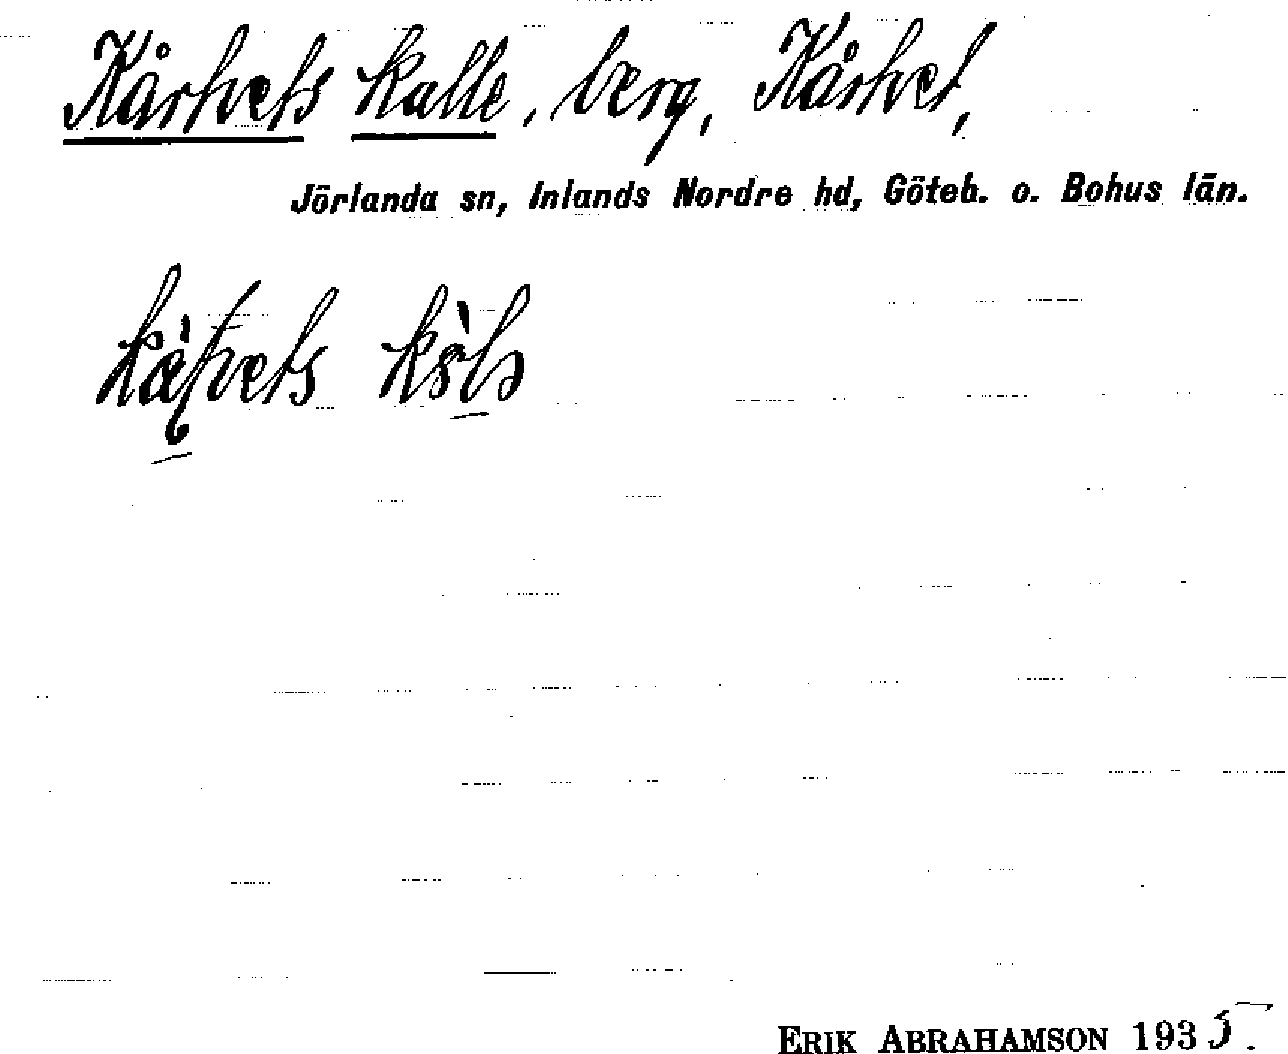 Kårtvets kalle, berg, Kårtvet,
Jörlanda sn, Inlands Nordre hd, Göteb. o. Bohus län.
ERIK ABRAHAMSON 1935.